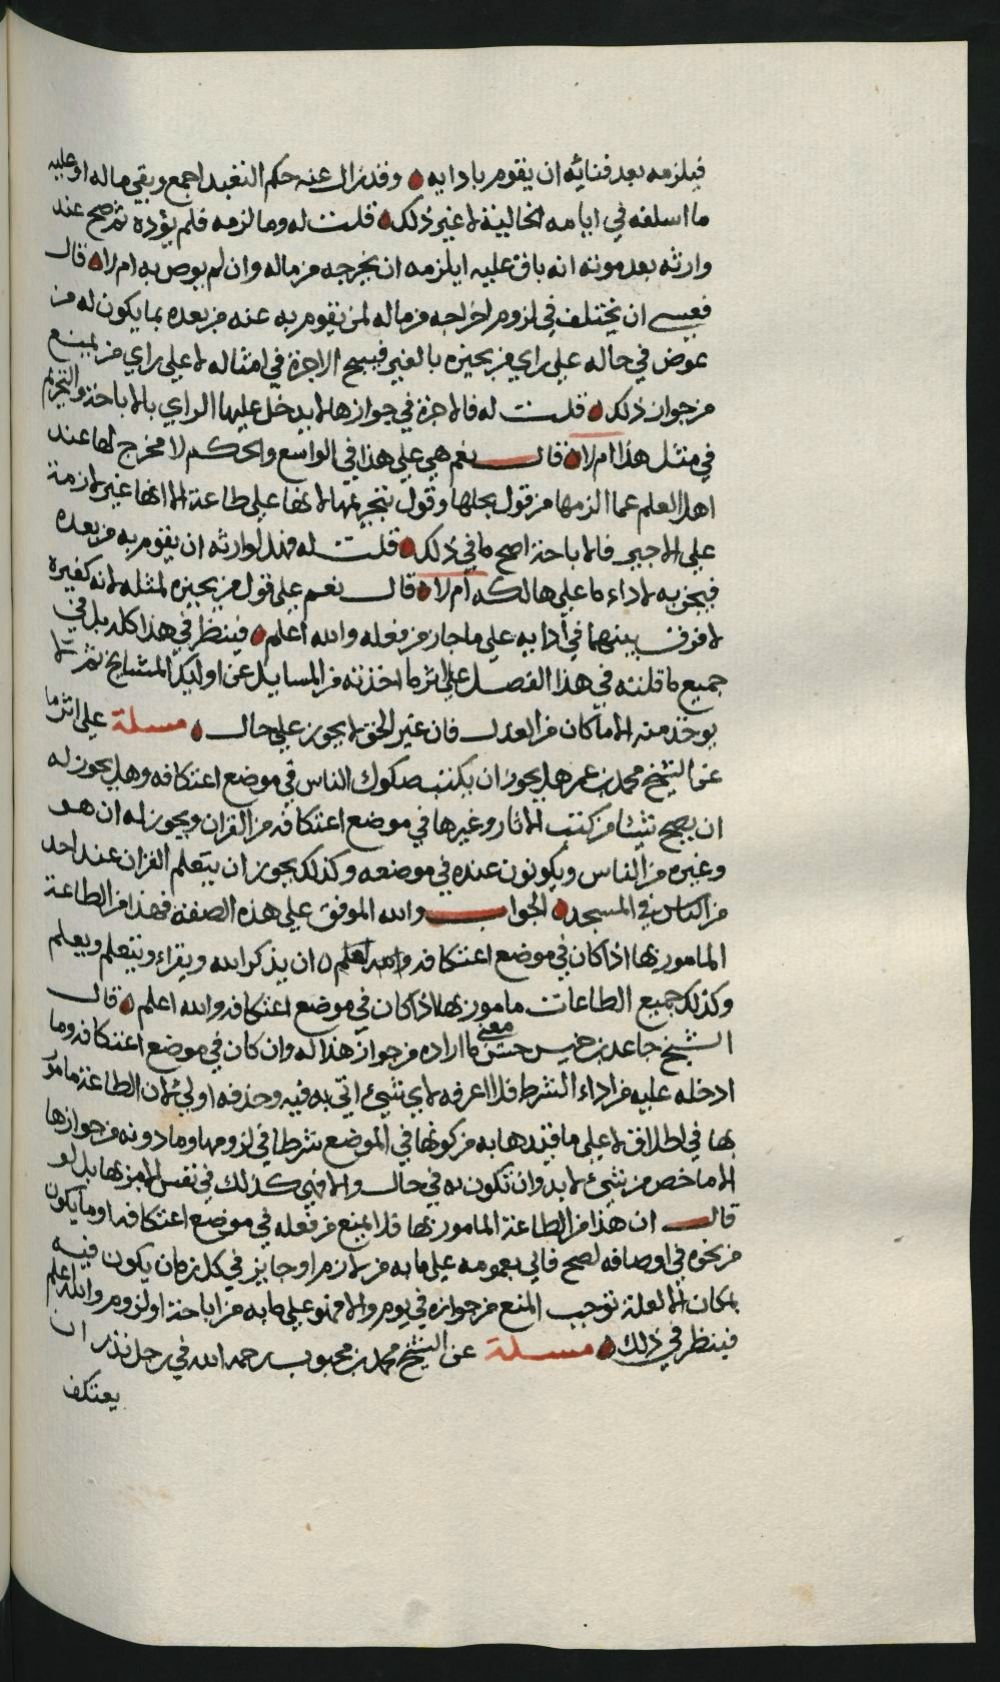 فيلزمه بعد فنائه ان يقوم بادايه وقد زال عنه حكم التعبد اجمع وبقي ماله او عليه
ما اسلفه في ايامه الخالية لا غير ذلك قلت له وما لزمه فلم يؤده ثم صح عند
وارثه بعد موته انه باق عليه ايلزمه ان يخرجه من ماله وان لم يوص به ام لا قال
فعسى ان يختلف في لزوم اخراجه من ماله لمن يقوم به عنه من بعده بما يكون له من
عوض في حاله على راي من يجيزه بالغير فيبيح الاجرة في امثاله لا على راي من يمنع
من جواز ذلك قلت له فالاجرة في جوازها لا يدخل عليها الراي بالاباحة والتحريم
في مثل هذا ام لا قال نعم هي على هذا في الواسع والحكم لا مخرج لها عند
اهل العلم عما الزمها من قول بحلها وقول بتحريمها لانها على طاعة الا انها غير لازمة
على الاجير فالاباحة اصح ما في ذلك قلت له فهل لوارثه ان يقوم به من بعده
فيجزيه لاداء ما على هالكه ام لا قال نعم على قول من يجيزه لمثله لانه كغيره
لا فرق بينهما في ادايه على ما جاز من فعله والله اعلم فينظر في هذا كله بل في
جميع ما قلته في هذا الفصل على اثر ما اخذته من المسايل عن اوليك المشايخ ثم لا
يوخذ منه الا ما كان من العدل فان غير الحق لا يجوز على حال مسلة على اثر ما
عن الشيخ محمد بن عمر هل يجوز ان يكتب صكوك الناس في موضع اعتكافه وهل يجوز له
ان يصحح شيئا من كتب الاثار وغيرها في موضع اعتكافه من القران ويجوز له ان هو
وغيره من الناس ويكونون عنده في موضعه وكذلك يجوز ان يتعلم القران عند احد
من الناس في المسجد الجواب والله الموفق على هذه الصفة فهذا من الطاعة
المامور بها اذا كان في موضع اعتكافه والله اعلم ان يذكر الله ويقراء ويتعلم ويعلم
وكذلك جميع الطاعات مامور بها اذا كان في موضع اعتكافه والله اعلم قال
الشيخ جاعد بن خميس حسن معنى ما اراده من جواز هذا له وان كان في موضع اعتكافه وما
ادخله عليه من اداء الشرط فلا اعرفه لاي شيئ اتى به فيه وحذفه اولى لان الطاعة مامور
بها في اطلاق لا على ما قيدها به من كونها في الموضع شرطا في لزومها وما دونه من جوازها
الا ما خص من شيئ لا بد وان تكون به في حال والا فهي كذلك في نفس الامر بها بل لو
قال ان هذا من الطاعة المامور بها فلا يمنع من فعله في موضع اعتكافه او ما يكون
من نحوه في اوصافه لصح فاني بعمومه على ما به من لازم او جايز في كل زمان يكون فيه
بمكان الا لعلة توجب المنع من جوازه في يوم والا فهو على ما به من اباحة او لزوم والله اعلم
فينظر في ذلك مسلة عن الشيخ محمد بن محبوب رحمه الله في رجل نذر ان
يعتكف